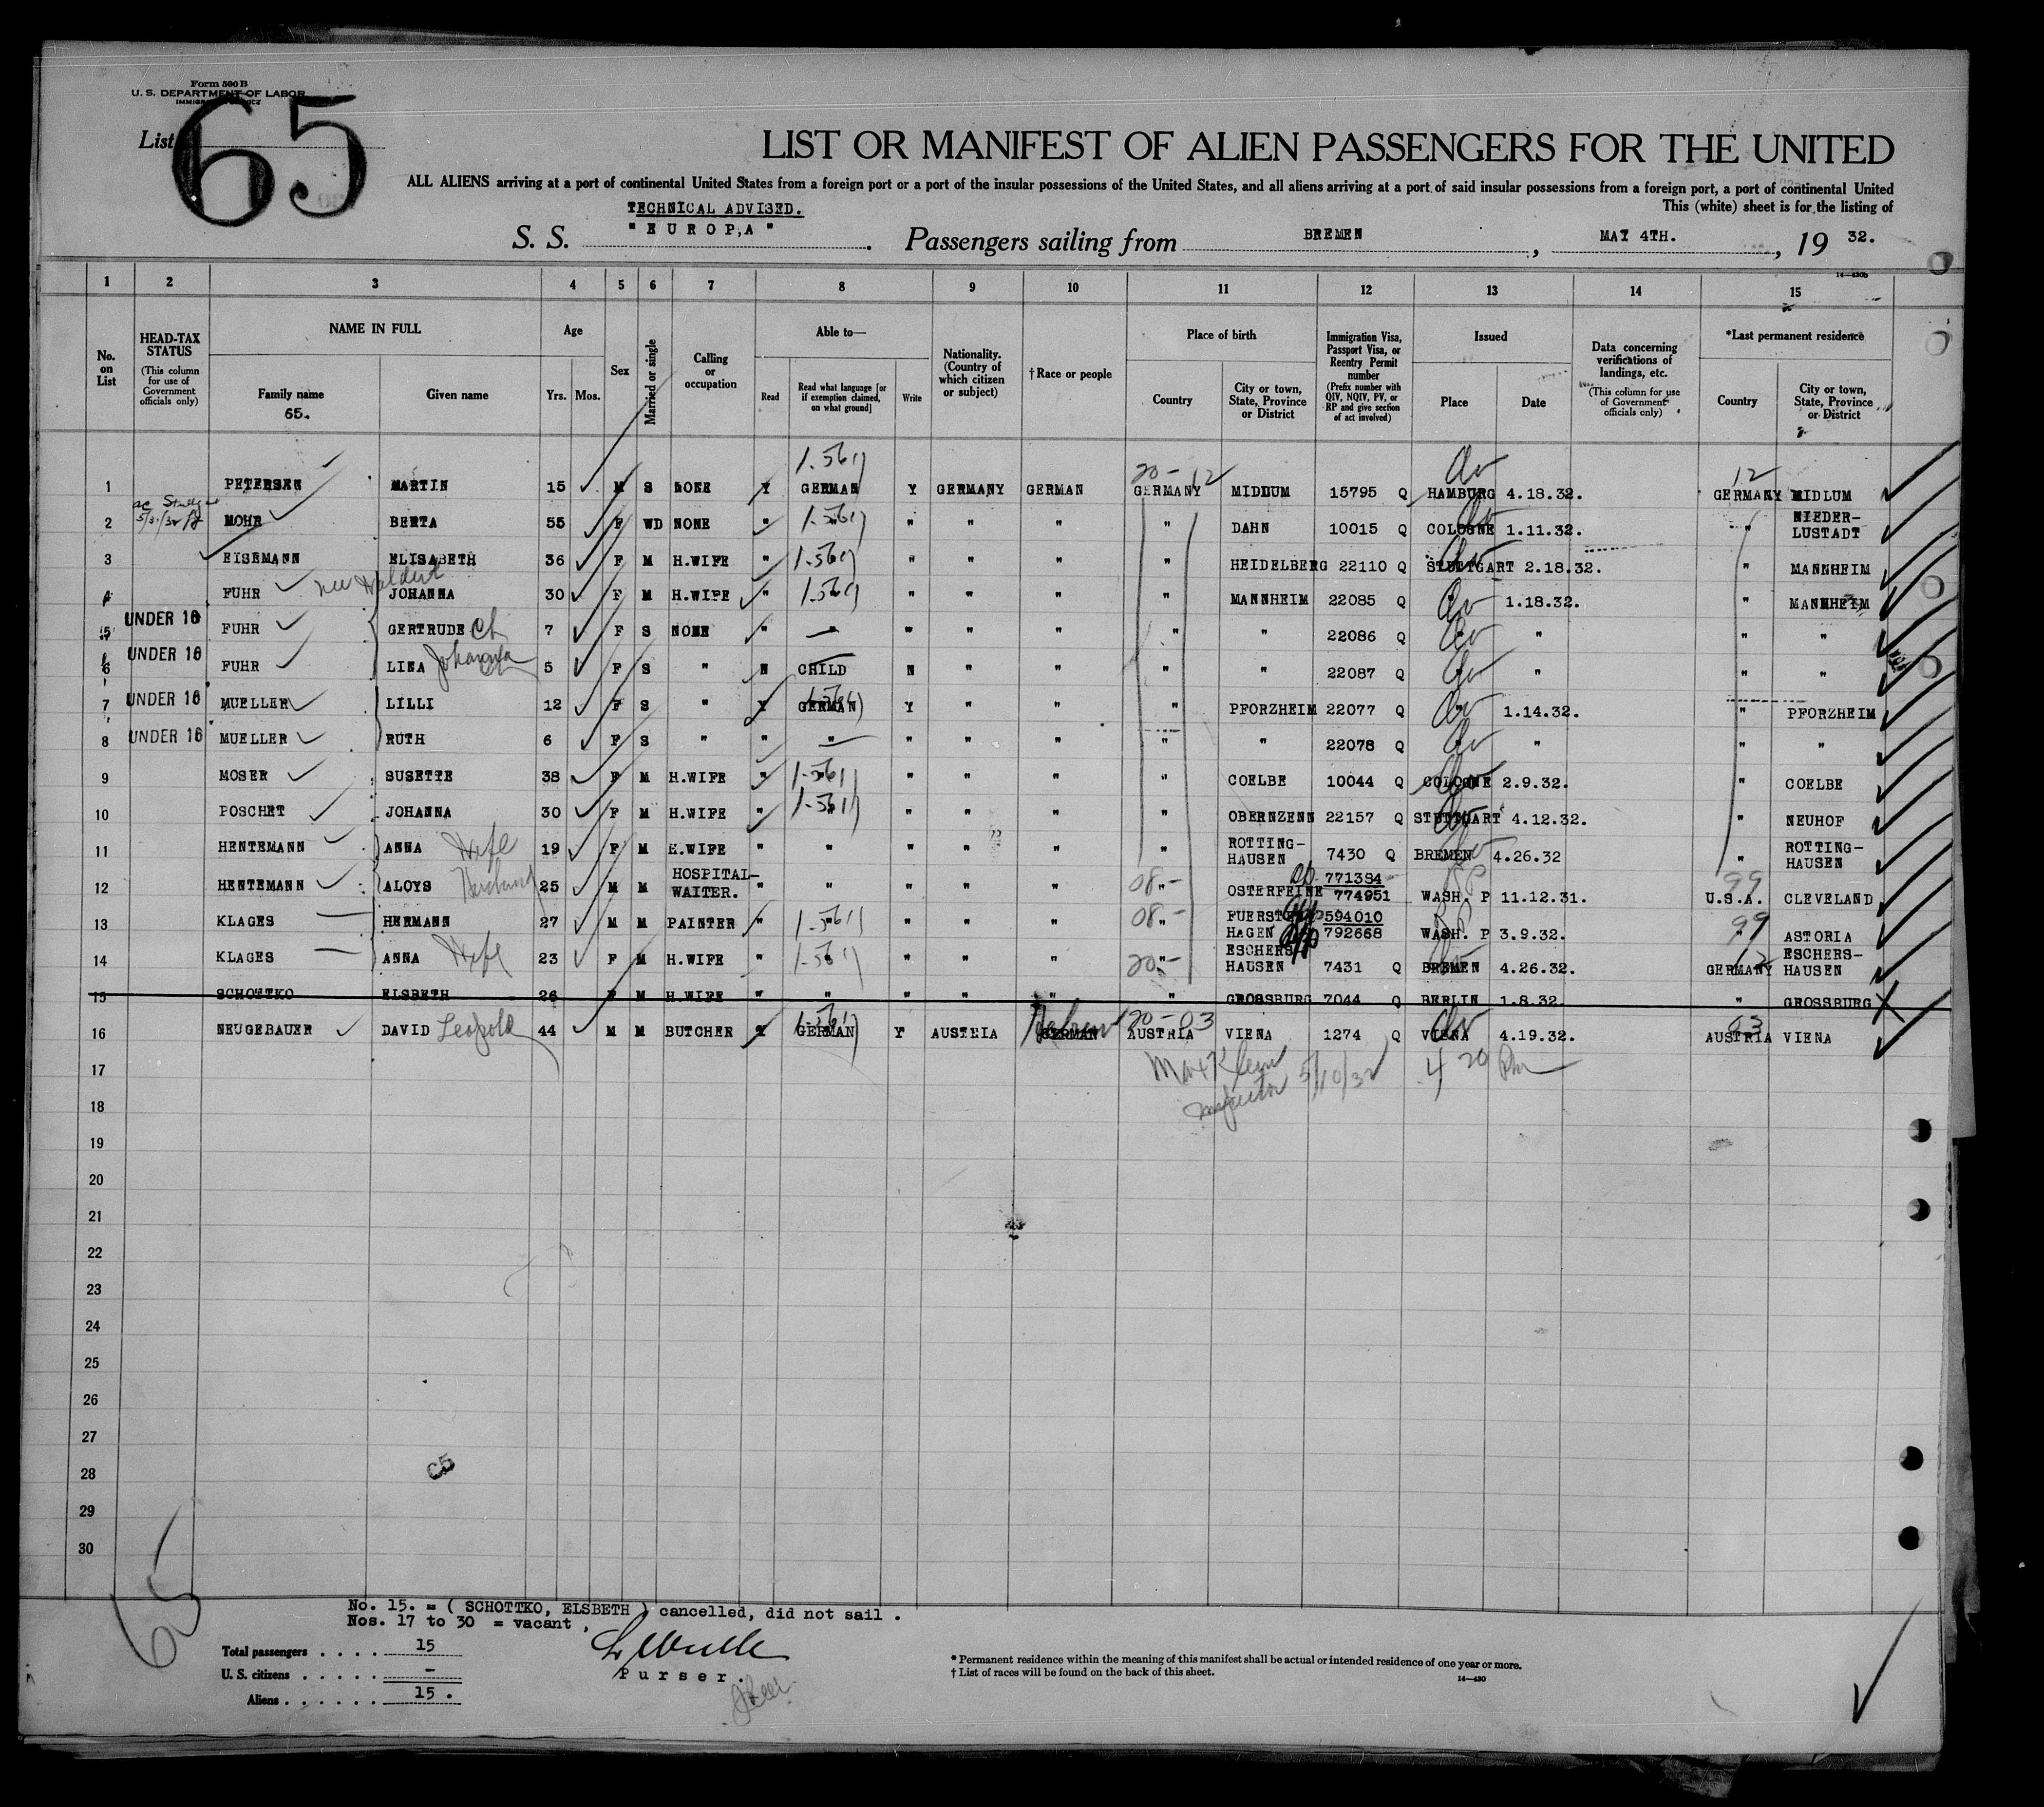 Form 500 B
U. S. DEPARTMENT OF LABOR
List 65
LIST OR MANIFEST OF ALIEN PASSENGERS FOR THE UNITED
ALL ALIENS arriving at a port of continental United States from a foreign port or a port of the insular possessions of the United States, and all aliens arriving at a port of said insular possessions from a foreign port, a port of continental United
This (white) sheet is for the listing of
TECHNICAL ADVISED.
S. S. "EUROPA". Passengers sailing from BREMEN, MAY 4TH., 19 32.
14—430b
1 2 3 4 5 6 7 8 9 10 11 12 13 14 15
No. on List
HEAD-TAX STATUS (This column for use of Government officials only)
NAME IN FULL Family name Given name
65.
Age Yrs. Mos.
Sex
Married or single
Calling or occupation
Able to— Read Read what language [or if exemption claimed, on what ground] Write
Nationality. (Country of which citizen or subject)
†Race or people
Place of birth Country City or town, State, Province or District
Immigration Visa, Passport Visa, or Reentry Permit number (Prefix number with QIV, NQIV, PV, or RP and give section of act involved)
Issued Place Date
Data concerning verifications of landings, etc. (This column for use of Government officials only)
*Last permanent residence Country City or town, State, Province or District
1 PETERSEN MARTIN 15 M S NONE Y GERMAN Y GERMANY GERMAN 20-12 GERMANY MIDLUM 15795 Q HAMBURG 4.18.32. 12 GERMANY MIDLUM
2 MOHR BERTA 55 F WD NONE " " " " " " DAHN 10015 Q COLOGNE 1.11.32. " NIEDER-LUSTADT
3 EISEMANN ELISABETH 36 F M H.WIFE " " " " " HEIDELBERG 22110 Q STUTTGART 2.18.32. " MANNHEIM
4 FUHR JOHANNA 30 F M H.WIFE " " " " " MANNHEIM 22085 Q " 1.18.32. " MANNHEIM
5 UNDER 16 FUHR GERTRUDE 7 F S NONE " " " " " " " 22086 Q " " " "
6 UNDER 16 FUHR LINA Johanna 5 F S " N CHILD N " " " " 22087 Q " " " "
7 UNDER 16 MUELLER LILLI 12 F S " Y GERMAN Y " " " PFORZHEIM 22077 Q " 1.14.32. " PFORZHEIM
8 UNDER 16 MUELLER RUTH 6 F S " " " " " " " " 22078 Q " " " "
9 MOSER SUSETTE 38 F M H.WIFE " " " " " " COELBE 10044 Q COLOGNE 2.9.32. " COELBE
10 POSCHET JOHANNA 30 F M H.WIFE " " " " " " OBERNZENN 22157 Q STUTTGART 4.12.32. " NEUHOF
11 HENTEMANN ANNA Wife 19 F M H.WIFE " " " " " " ROTTING-HAUSEN 7430 Q BREMEN 4.26.32 " ROTTING-HAUSEN
12 HENTEMANN ALOYS Husband 25 M M HOSPITAL-WAITER. " " " " " 08- " OSTERFEINE 771384 774951 WASH. P 11.12.31. 99 U.S.A. CLEVELAND
13 KLAGES HERMANN 27 M M PAINTER " " " " " 08- " HAGEN 594010 792668 WASH. P 3.9.32. 99 " ASTORIA
14 KLAGES ANNA Wife 23 F M H.WIFE " " " " " 20- " ESCHERS-HAUSEN 7431 Q BREMEN 4.26.32. 12 GERMANY ESCHERS-HAUSEN
15 SCHOTTKO ELSBETH 26 F M H.WIFE " " " " " " GROSSBURG 7044 Q BERLIN 1.8.32. " GROSSBURG
16 NEUGEBAUER DAVID Leopold 44 M M BUTCHER Y GERMAN Y AUSTRIA GERMAN Hebrew 20-03 AUSTRIA VIENA 1274 Q VIENA 4.19.32. 03 AUSTRIA VIENA
17 Max Klein 5/10/32 4 20 Pm
18
19
20
21
22
23
24
25
26
27
28
29
30
65
No. 15. = ( SCHOTTKO, ELSBETH ) cancelled, did not sail .
Nos. 17 to 30 = vacant ,
Total passengers . . . . 15
U. S. citizens . . . . . –
Aliens . . . . . . 15 .
Purser.
* Permanent residence within the meaning of this manifest shall be actual or intended residence of one year or more.
† List of races will be found on the back of this sheet.
14—430